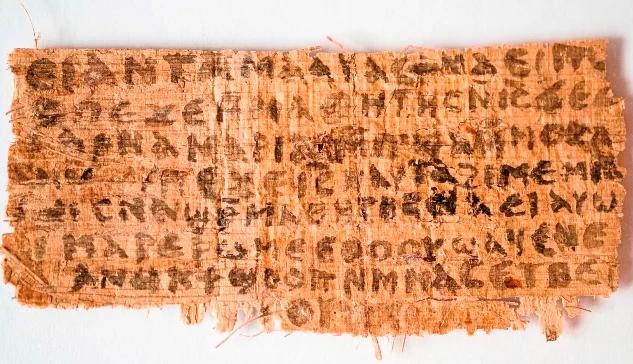 ⲉⲓ ⲁⲛ ⲧⲁⲙⲁⲁⲩ ⲁⲥϯ ⲛⲁⲉⲓ ⲡ
ⲡⲉϫⲉ ⲙⲙⲁⲑⲏⲧⲏⲥ ⲛⲓ̅ⲥ̅ ϫⲉ ⲥ
ⲁⲣⲛⲁ ⲙⲁⲣⲓⲁⲙ ⲙⲡϣⲁ ⲙⲙⲟⲥ ⲁ
ⲡⲉϫⲉ ⲓ̅ⲥ̅ ⲛⲁⲩ ⲧⲁϩⲓⲙⲉ ⲙⲛ
ⲥⲛⲁϣⲣⲙⲁⲑⲏⲧⲏⲥ ⲛⲁⲉⲓ ⲁⲩⲱ
ⲓ ⲙⲁⲣⲉⲣⲱⲙⲉ ⲉⲑⲟⲟⲩ ϣⲁϥⲉ ⲛⲉ
ⲁⲛⲟⲕ ϯϣⲟⲟⲡ ⲛⲙⲙⲁⲥ ⲉⲧⲃⲉ ⲡ